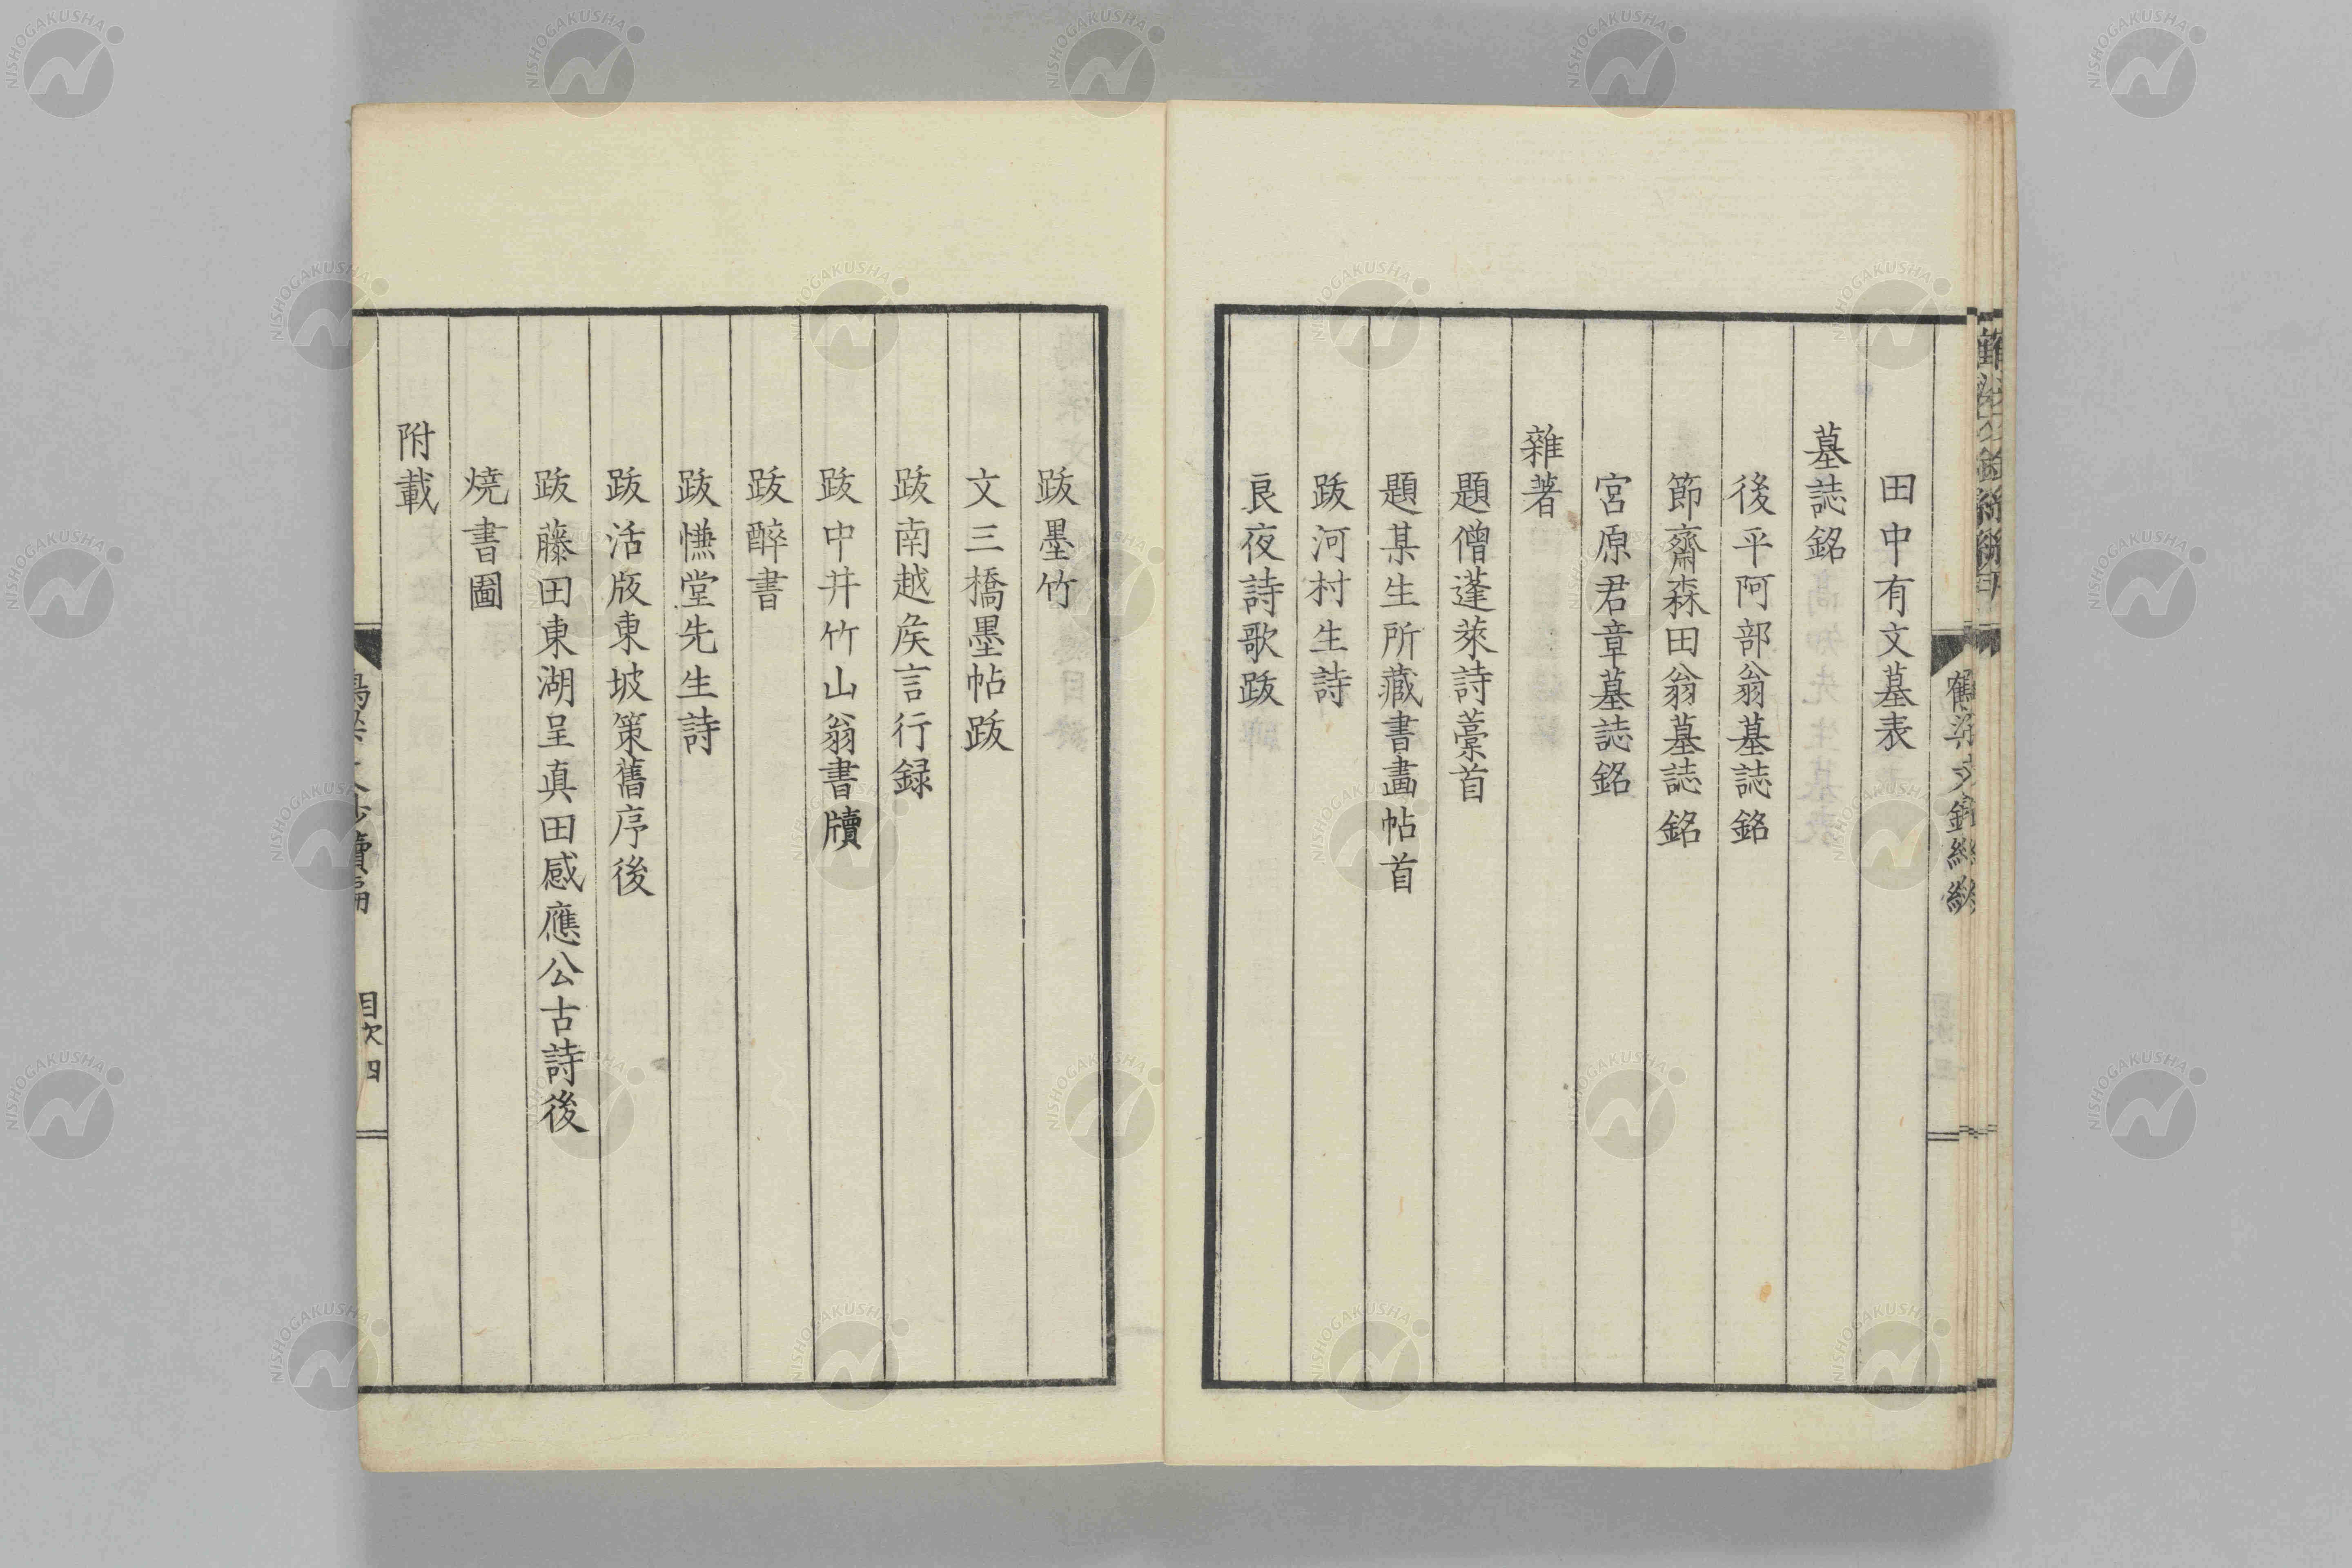 田中有文墓表
墓誌銘
後平阿部翁墓誌銘
節齋森田翁墓誌銘
宮原君章墓誌銘
雜著
題僧蓬萊詩藁首
題某生所藏書畵帖首
跋河村生詩
良夜詩歌跋
跋墨竹
文三橋墨帖跋
跋南越矦言行録
跋中井竹山翁書牘
跋醉書
跋慊堂先生詩
跋活版東坡策舊序後
跋藤田東湖呈真田感應公古詩後
燒書圖
附載
目次 四
NISHOGAKUSHA